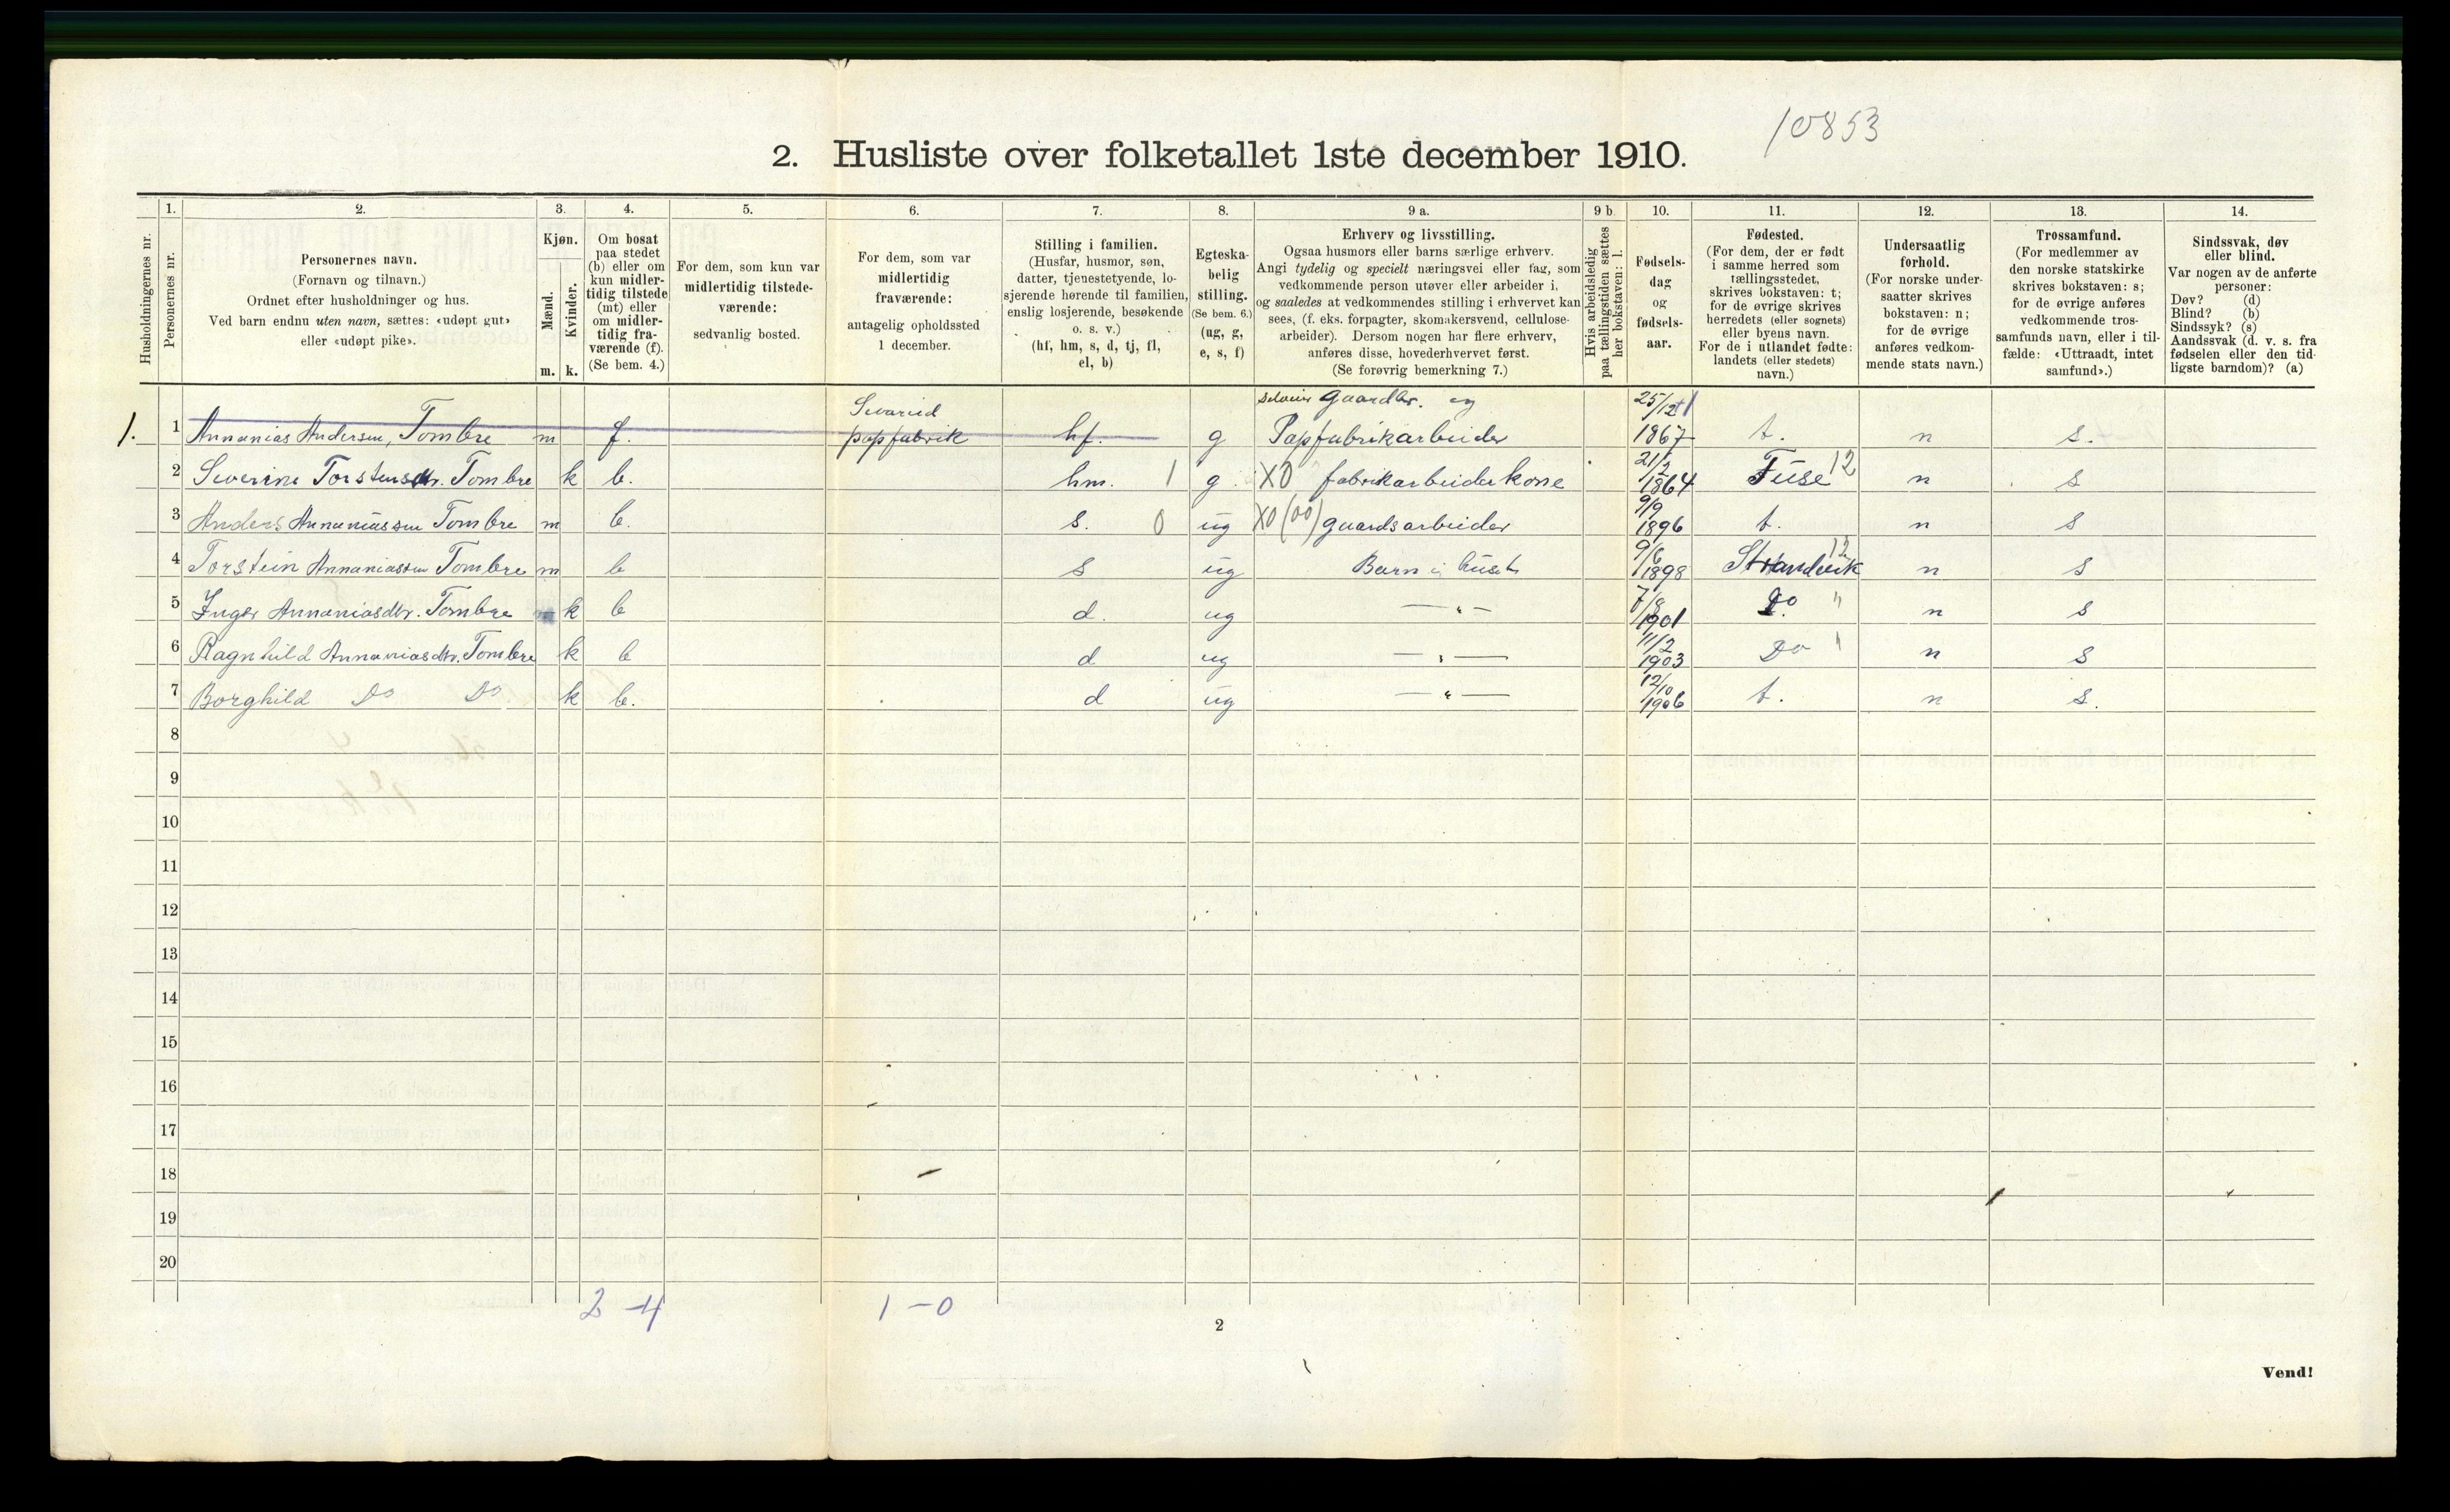 10853
2. Husliste over folketallet 1ste december 1910.
Husholdningernes nr.
1.
Personernes nr.
2.
Personernes navn.
(Fornavn og tilnavn.)
Ordnet efter husholdninger og hus.
Ved barn endnu uten navn, sættes: «udøpt gut»
eller «udøpt pike».
3.
Kjøn.
Mænd.
Kvinder.
m. k.
4.
Om bosat
paa stedet
(b) eller om
kun midler-
tidig tilstede
(mt) eller
om midler-
tidig fra-
værende (f).
(Se bem. 4.)
5.
For dem, som kun var
midlertidig tilstede-
værende:
sedvanlig bosted.
6.
For dem, som var
midlertidig
fraværende:
antagelig opholdssted
1 december.
7.
Stilling i familien.
(Husfar, husmor, søn,
datter, tjenestetyende, lo-
sjerende hørende til familien,
enslig losjerende, besøkende
o. s. v.)
(hf, hm, s, d, tj, fl,
el, b)
8.
Egteska-
belig
stilling.
(Se bem. 6.)
(ug, g,
e, s, f)
9 a.
Erhverv og livsstilling.
Ogsaa husmors eller barns særlige erhverv.
Angi tydelig og specielt næringsvei eller fag, som
vedkommende person utøver eller arbeider i,
og saaledes at vedkommendes stilling i erhvervet kan
sees, (f. eks. forpagter, skomakersvend, cellulose-
arbeider). Dersom nogen har flere erhverv,
anføres disse, hovederhvervet først.
(Se forøvrig bemerkning 7.)
9 b
Hvis arbeidsledig
paa tællingstiden sættes
her bokstaven: l.
10.
Fødsels-
dag
og
fødsels-
aar.
11.
Fødested.
(For dem, der er født
i samme herred som
tællingsstedet,
skrives bokstaven: t;
for de øvrige skrives
herredets (eller sognets)
eller byens navn.
For de i utlandet fødte:
landets (eller stedets)
navn.)
12.
Undersaatlig
forhold.
(For norske under-
saatter skrives
bokstaven: n;
for de øvrige
anføres vedkom-
mende stats navn.)
13.
Trossamfund.
(For medlemmer av
den norske statskirke
skrives bokstaven: s;
for de øvrige anføres
vedkommende tros-
samfunds navn, eller i til-
fælde: «Uttraadt, intet
samfund».)
14.
Sindssvak, døv
eller blind.
Var nogen av de anførte
personer:
Døv? (d)
Blind? (b)
Sindssyk? (s)
Aandssvak (d. v. s. fra
fødselen eller den tid-
ligste barndom)? (a)
1. 1 Annanias Andersen, Tombre m f. papfabrik hf. g gaardbr. og Papfabrikarbeider 25/12 1867 t. n s.
2 Severine Torstensdtr. Tombre k b. hm. 1 g XO fabrikarbeiderkone 21/2 1864 Fuse 12 n s
3 Anders Annaniassen Tombre m b. s. 0 ug XO (00) gaardsarbeider 9/9 1896 t. n s
4 Torstein Annaniassen Tombre m b s ug Barn i huset 9/6 1898 Strandvik 12 n s
5 Inger Annaniasdtr. Tombre k b d. ug — " — 7/8 1901 Do " n s
6 Ragnhild Annaniasdtr. Tombre k b d ug — " — 11/2 1903 Do " n s
7 Borghild Do Do k b. d ug — " — 12/10 1906 t. n s.
8
9
10
11
12
13
14
15
16
17
18
19
20
2 - 4 1 - 0
2
Vend!